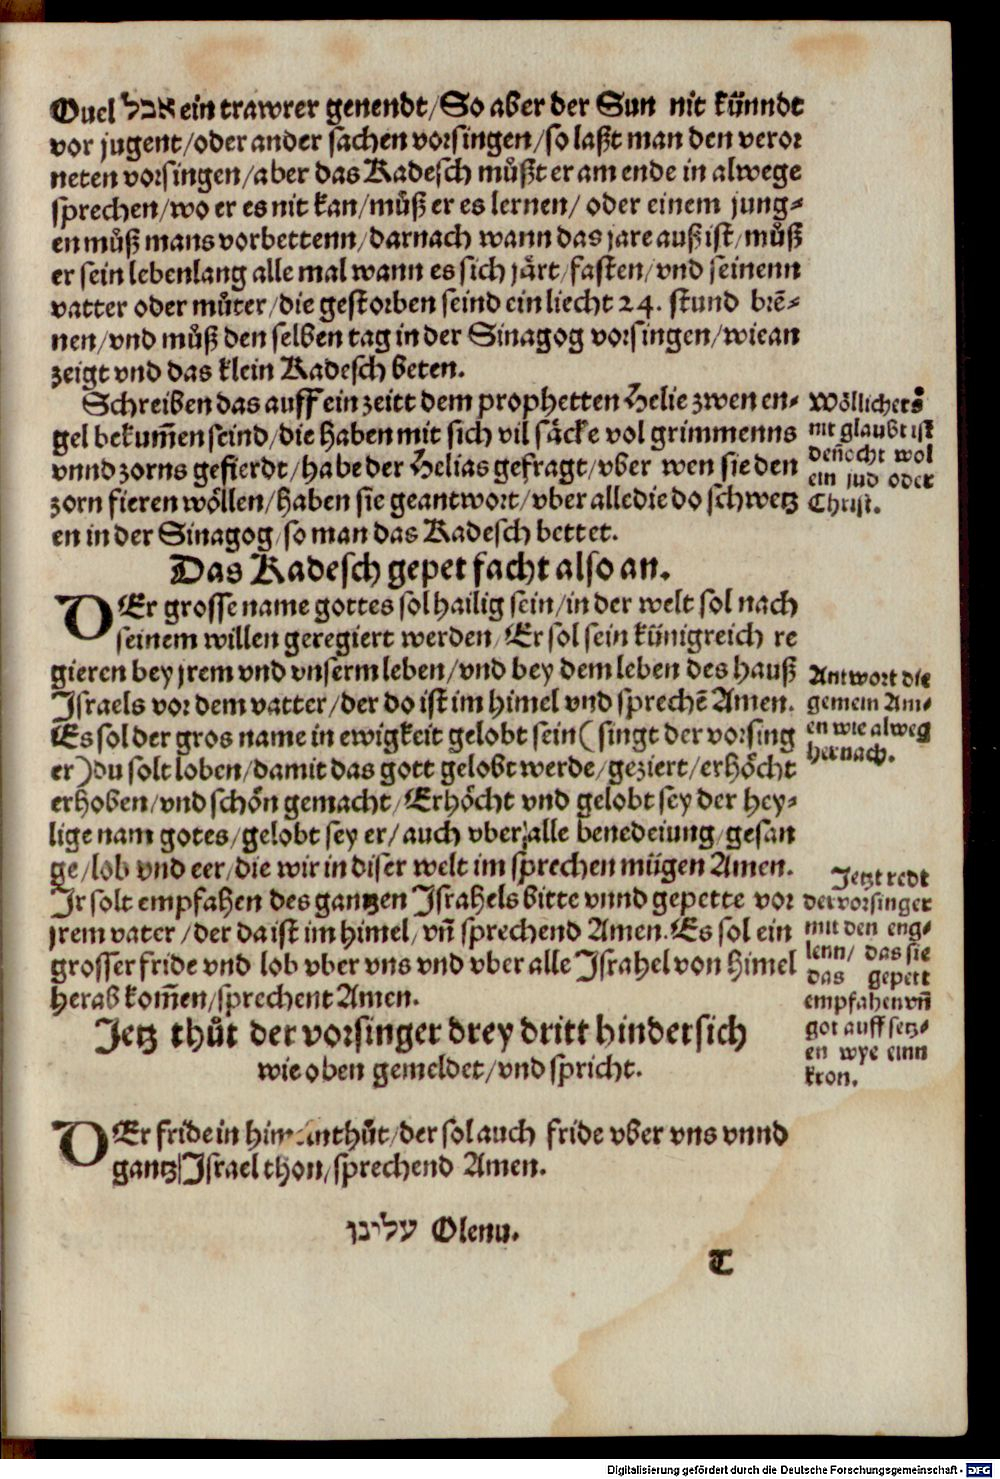 Ouel אבל ein trawrer genendt/So aber der Sun nit künndt
vor jugent/oder ander sachen vorsingen/so laßt man den veror
neten vorsingen/aber das Kadesch můßt er am ende in alwege
sprechen/wo er es nit kan/můß er es lernen/ oder einem jung⸗
en můß mans vorbettenn/darnach wann das jare auß ist/můß
er sein lebenlang alle mal wann es sich järt/fasten/vnd seinenn
vatter oder můter/die gestorben seind ein liecht 24. stund brē⸗
nen/vnd můß den selben tag in der Sinagog vorsingen/wie an
zeigt vnd das klein Kadesch beten.
Schreiben das auff ein zeitt dem prophetten Helie zwen en⸗
gel bekum̄en seind/die haben mit sich vil säcke vol grimmenns
vnnd zorns gefierdt/habe der Helias gefragt/vber wen sie den
zorn fieren wöllen/haben sie geantwort/vber alle die do schwetz
en in der Sinagog/so man das Kadesch bettet.
Wöllichers
nit glaubt ist
deñocht wol
ein jud oder
Christ.
Das Kadesch gepet facht also an.
DEr grosse name gottes sol hailig sein/in der welt sol nach
seinem willen geregiert werden/Er sol sein künigreich re
gieren bey jrem vnd vnserm leben/vnd bey dem leben des hauß
Israels vor dem vatter/der do ist im himel vnd sprechē Amen.
Es sol der gros name in ewigkeit gelobt sein(singt der vorsing
er)du solt loben/damit das gott gelobt werde/geziert/erhöcht
erhoben/vnd schön gemacht/Erhöcht vnd gelobt sey der hey⸗
lige nam gotes/gelobt sey er/auch vber alle benedeiung/gesan
ge/lob vnd eer/die wir in diser welt im sprechen mügen Amen.
Ir solt empfahen des gantzen Israhels bitte vnnd gepette vor
jrem vater/der da ist im himel/vñ sprechend Amen.Es sol ein
grosser fride vnd lob vber vns vnd vber alle Israhel von himel
herab kom̄en/sprechent Amen.
Antwort die
gemein Am⸗
en wie alweg
hernach.
Jetzt redt
der vorsinger
mit den eng⸗
lenn/ das sie
das gepett
empfahen vñ
got auff setz⸗
en wye einn
kron.
Jetz thůt der vorsinger drey dritt hindersich
wie oben gemeldet/vnd spricht.
DEr fride in thůt/der sol auch fride vber vns vnnd
gantz Israel thon/sprechend Amen.
עלינו Olenu.
T
Digitalisierung gefördert durch die Deutsche Forschungsgemeinschaft - DFG